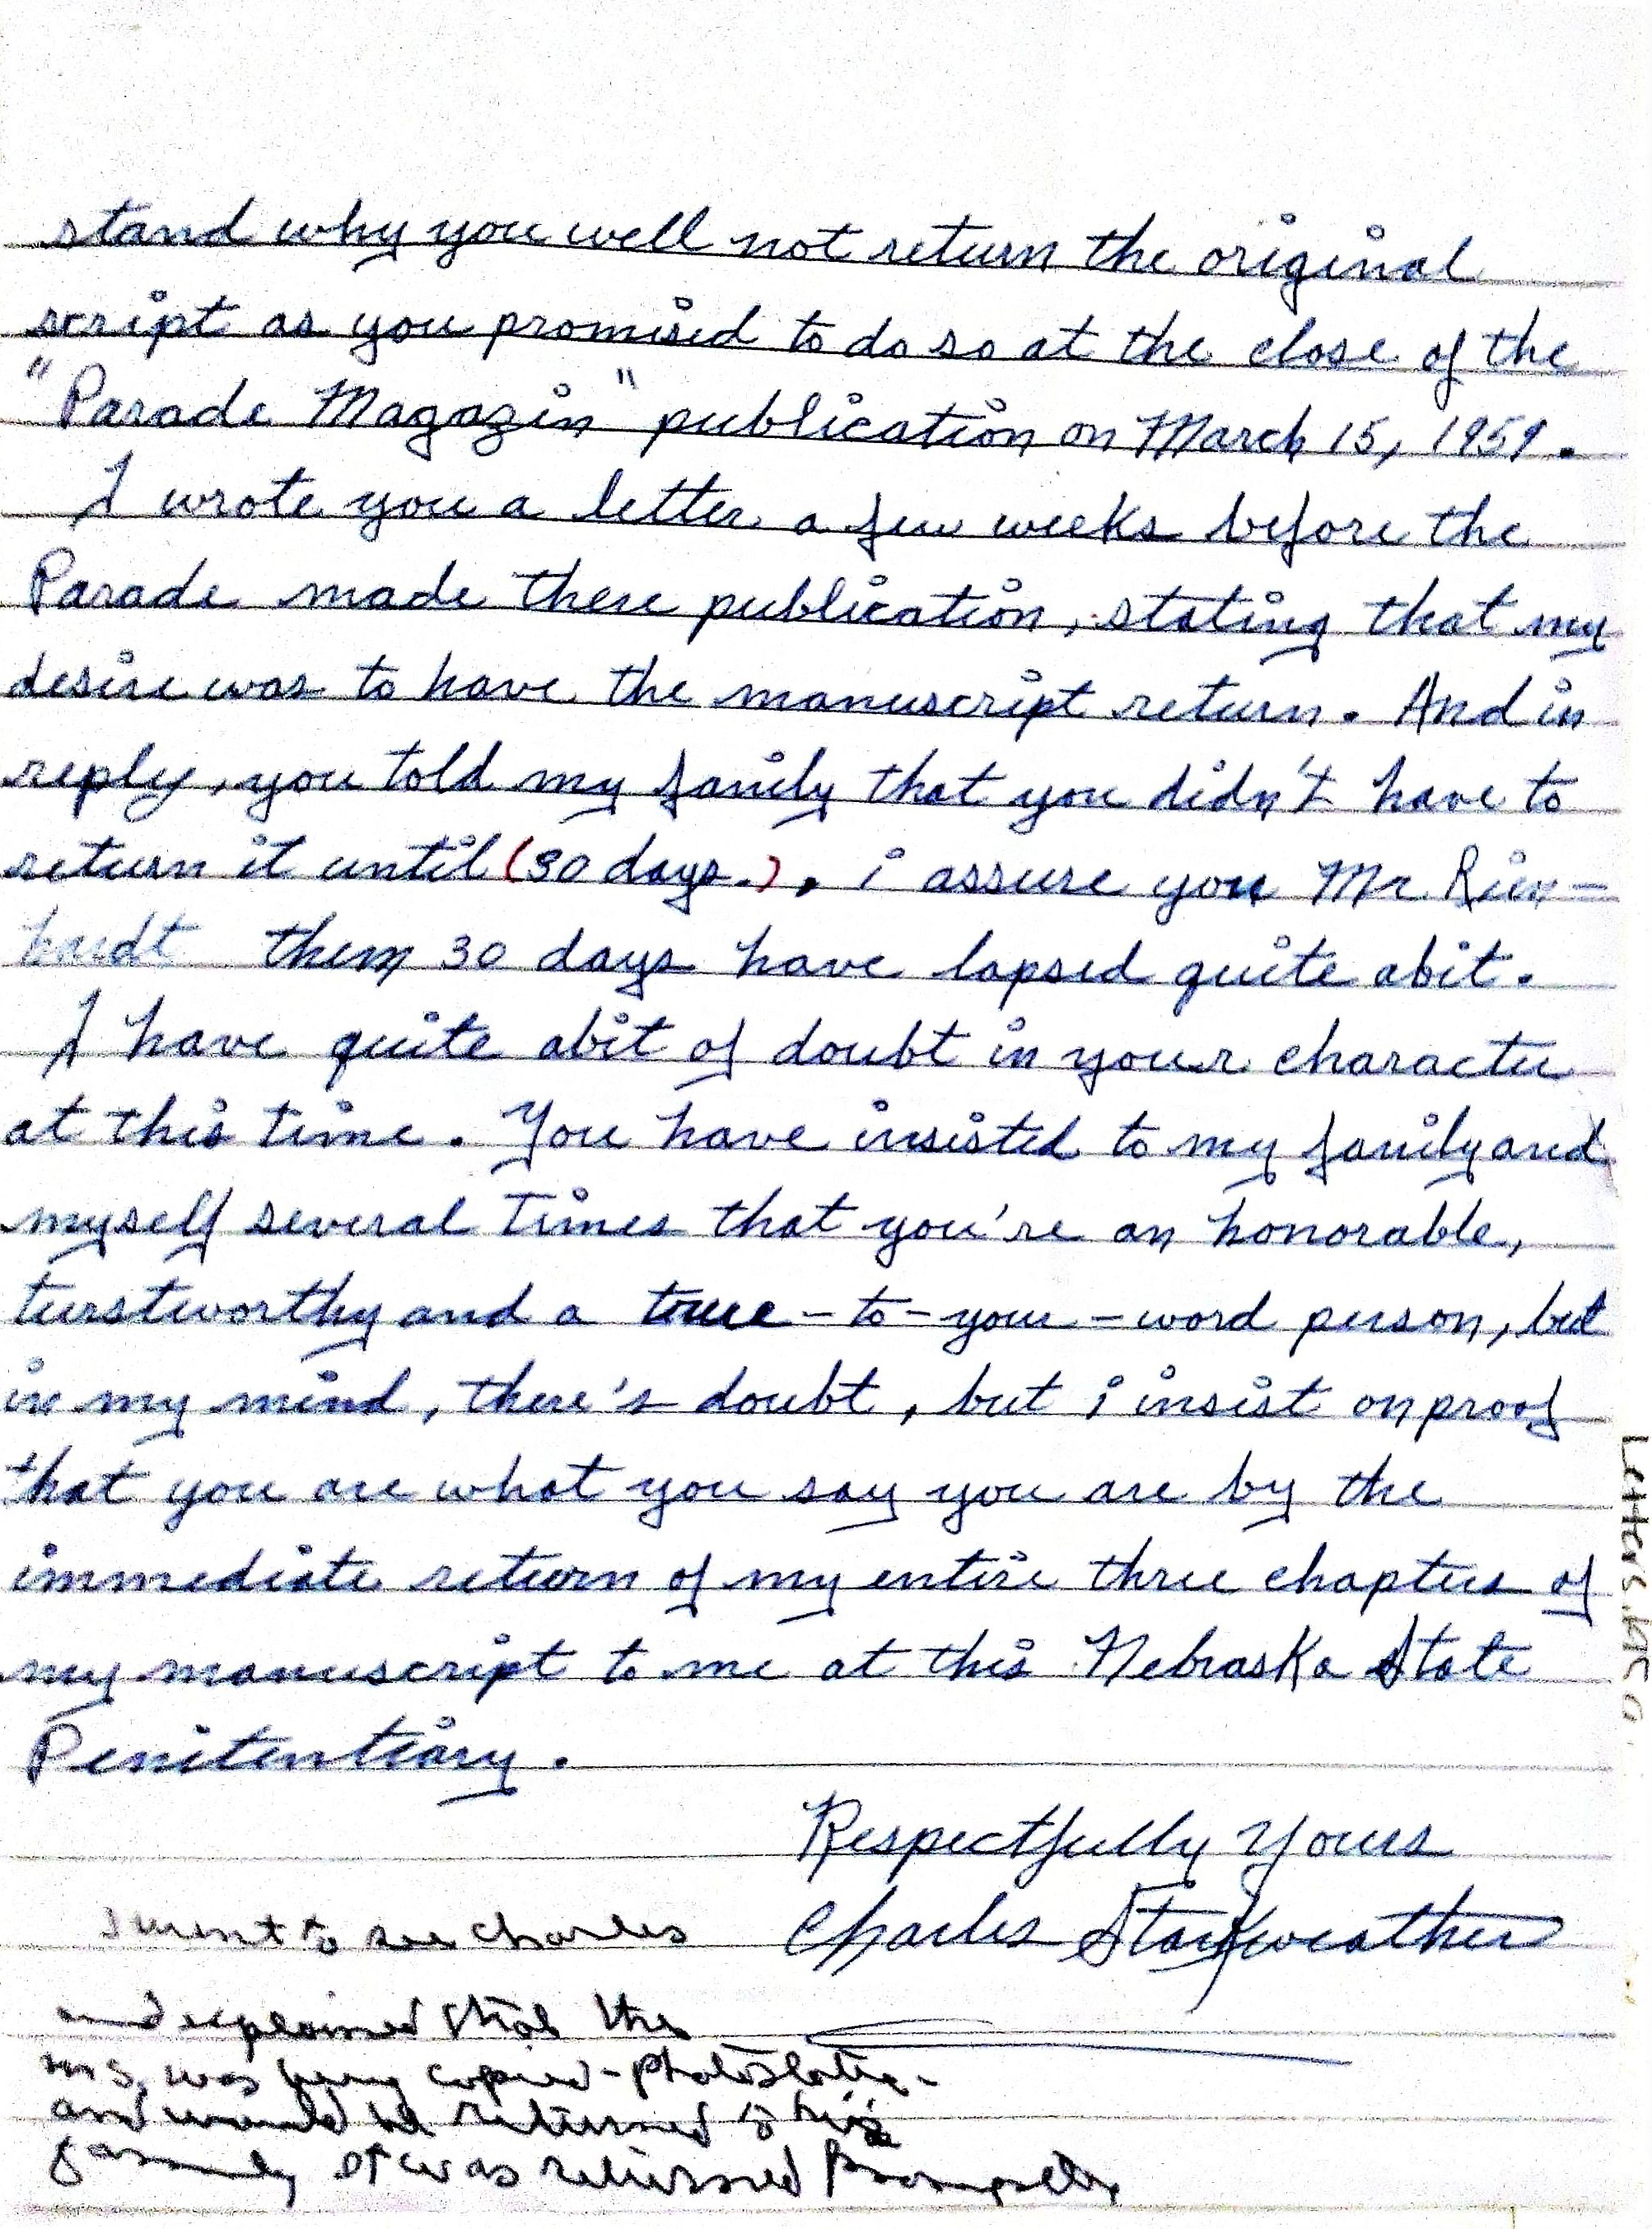 stand why you well not return the original
script as you promised to do so at the close of the
"Parade Magazin" publication on March 15, 1959.
I wrote you a letter a few weeks before the
Parade made there publication, stating that my
desire was to have the manuscript return. And in
reply, you told my family that you didn't have to
return it until (30 days.), i assure you Mr. Rein-
hardt them 30 days have lapsed quite abit.
I have quite abit of doubt in your character
at this time. You have insisted to my family and
myself several times that you're an honorable,
turstworthy and a true-to-your-word person, but
in my mind, there's doubt, but i insist on proof
that you are what you say you are by the
immediate return of my entire three chapters of
my manuscript to me at this Nebraska State
Penitentiary.
Respectfully Yours
Charles Starkweather
I went to see Charles
and explained that the
ms. was being copied-photostatic-
and would be returned to his
family It was returned promptly